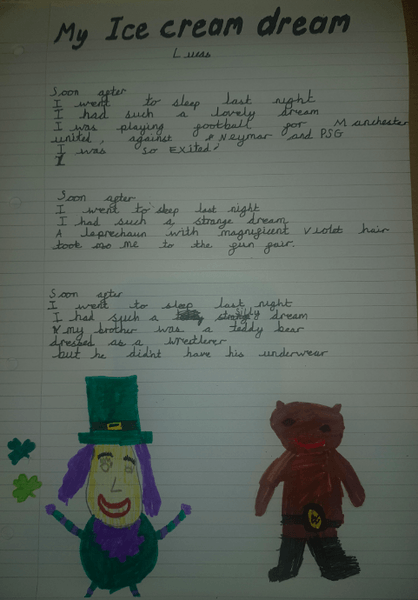 My Ice cream dream
Lucas
Soon after
I went to sleep last night
I had such a lovely dream
I was playing football for Manchester
united, against Neymar and PSG
I was so Exited!
Soon after
I went to sleep last night
I had such a strange dream
A leprechaun with magnificent violet hair
took me to the fun fair.
Soon after
I went to sleep last night
I had such a silly dream
my brother was a teddy bear
dressed as a wrestlerer
but he didn't have his underwear